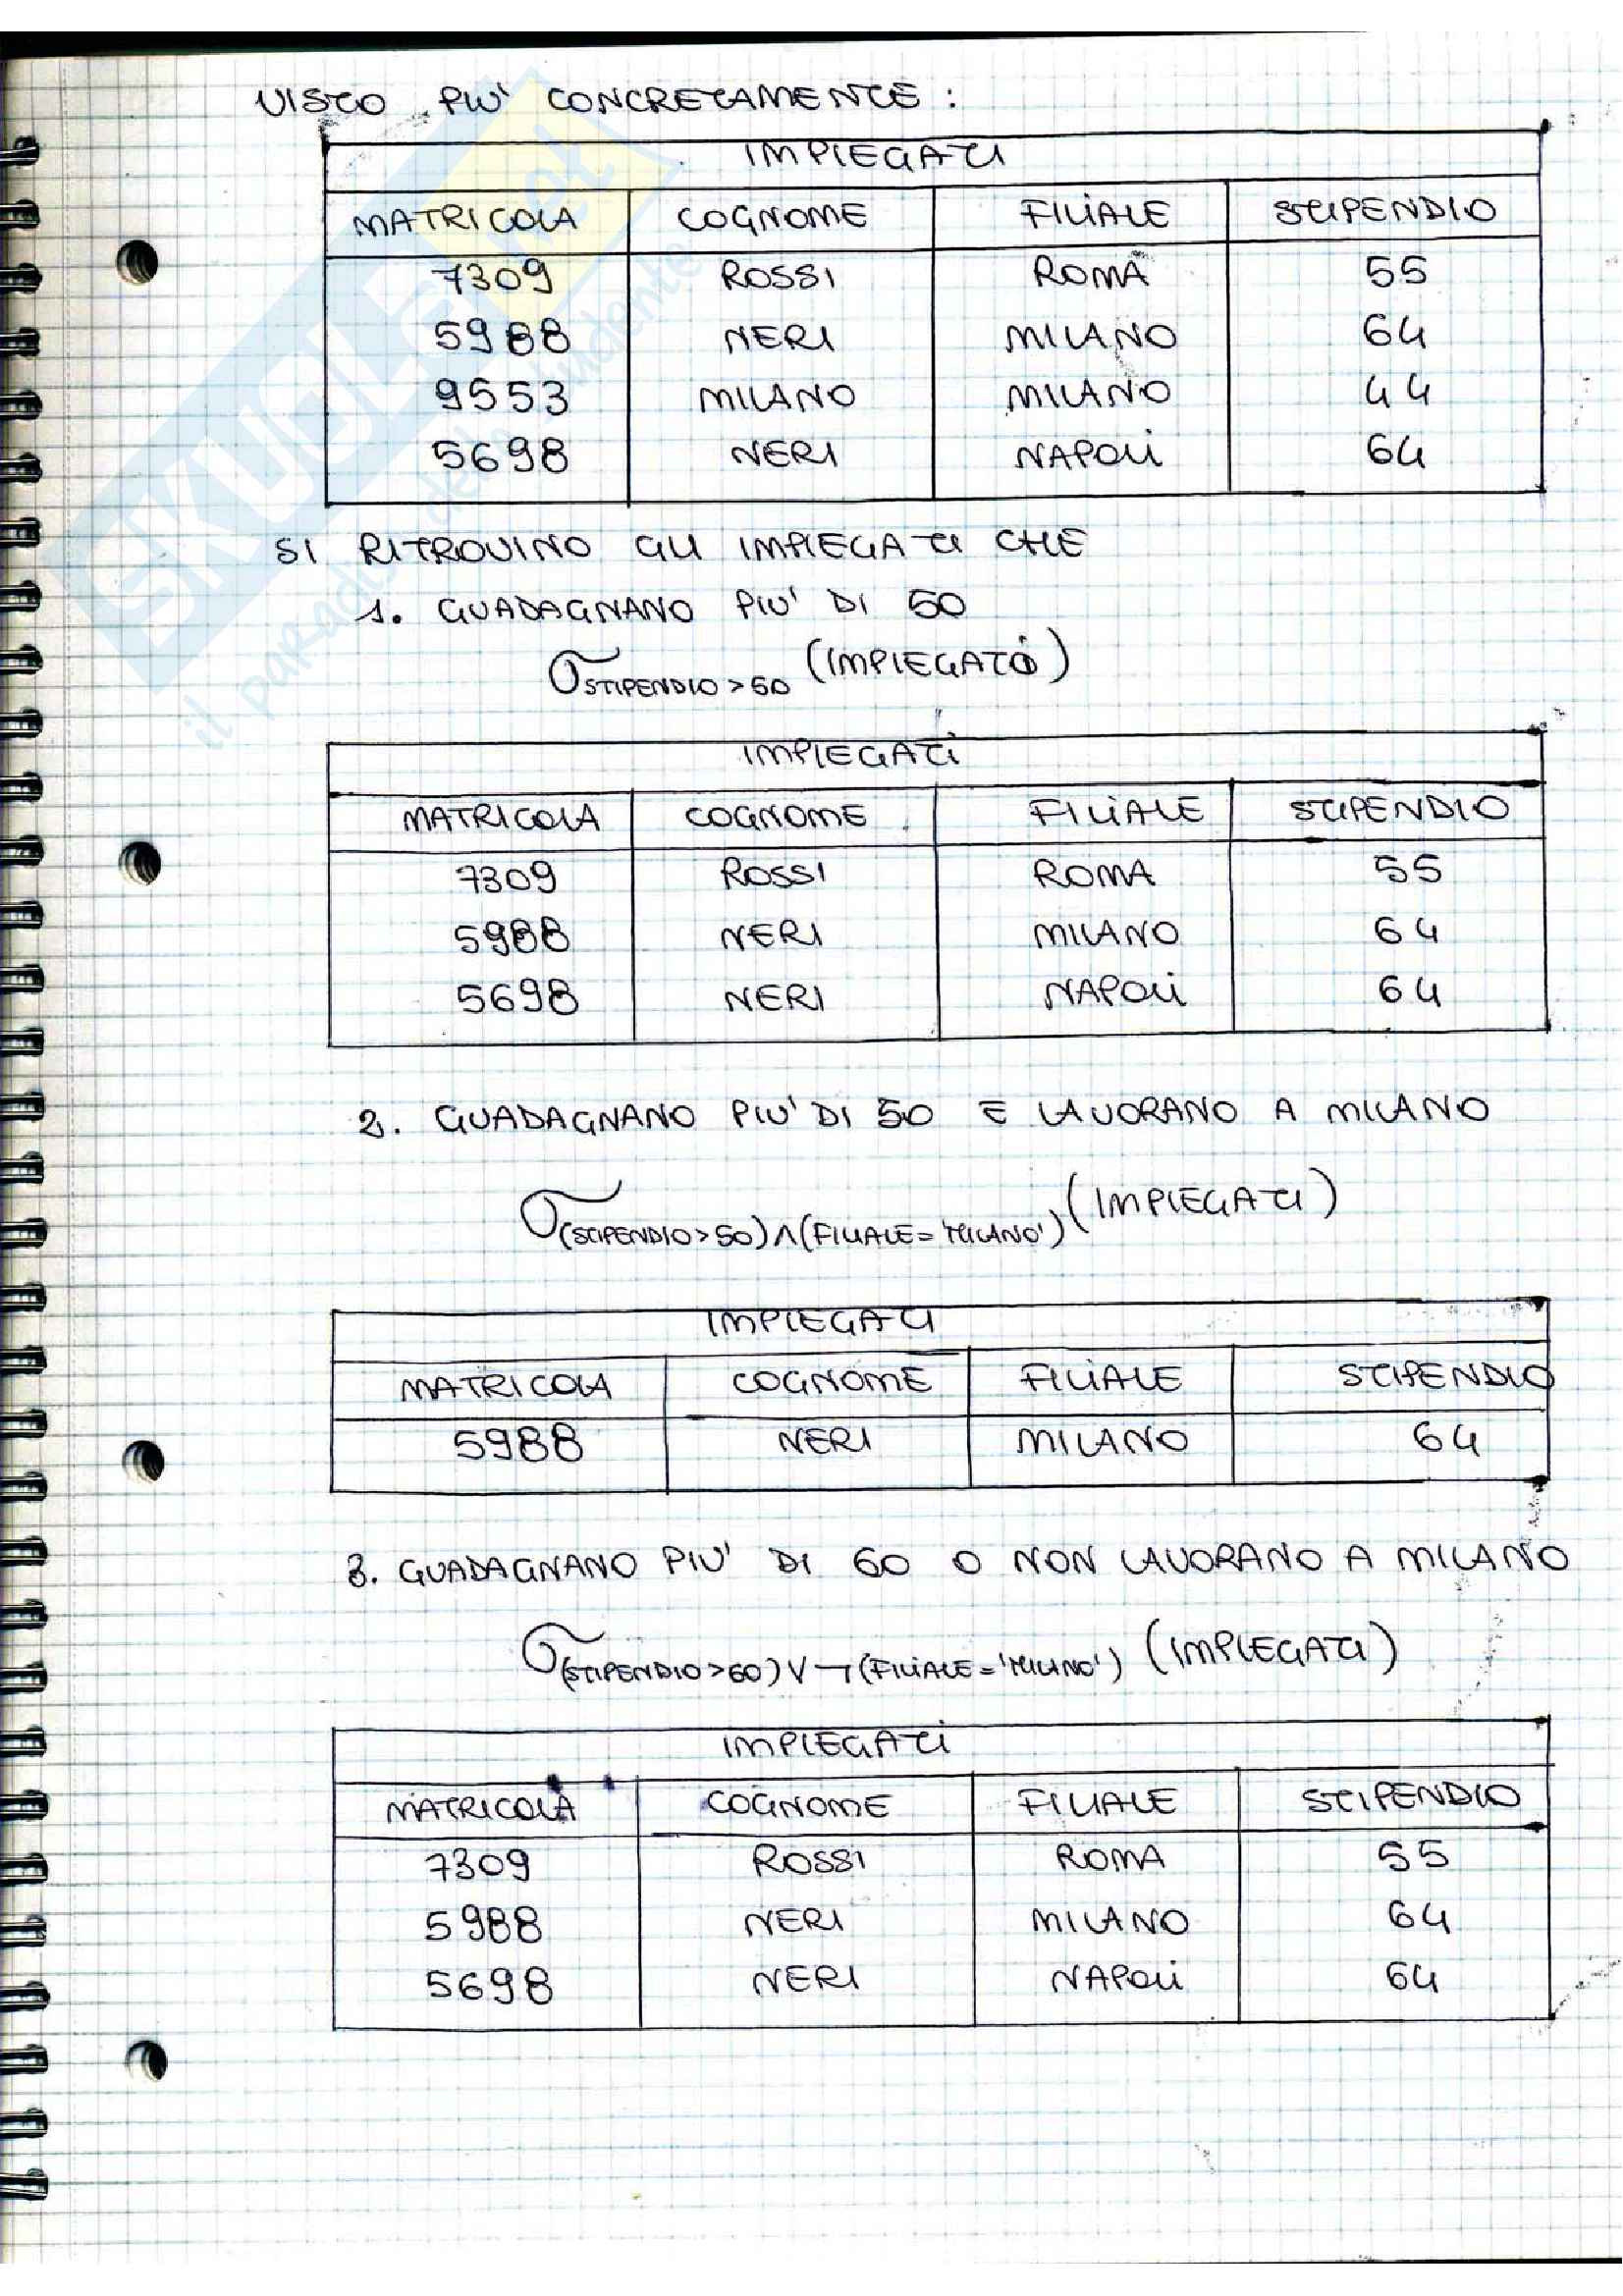 VISTO PIU' CONCRETAMENTE:
IMPIEGATI
MATRICOLA COGNOME FILIALE STIPENDIO
7309 ROSSI ROMA 55
5988 NERI MILANO 64
9553 MILANO MILANO 44
5698 NERI NAPOLI 64
SI RITROVINO GLI IMPIEGATI CHE
1. GUADAGNANO PIU' DI 50
σ STIPENDIO > 50 (IMPIEGATI)
IMPIEGATI
MATRICOLA COGNOME FILIALE STIPENDIO
7309 ROSSI ROMA 55
5988 NERI MILANO 64
5698 NERI NAPOLI 64
2. GUADAGNANO PIU' DI 50 E LAVORANO A MILANO
σ (STIPENDIO > 50) ∧ (FILIALE = 'MILANO') (IMPIEGATI)
IMPIEGATI
MATRICOLA COGNOME FILIALE STIPENDIO
5988 NERI MILANO 64
3. GUADAGNANO PIU' DI 60 O NON LAVORANO A MILANO
σ (STIPENDIO > 60) ∨ ¬ (FILIALE = 'MILANO') (IMPIEGATI)
IMPIEGATI
MATRICOLA COGNOME FILIALE STIPENDIO
7309 ROSSI ROMA 55
5988 NERI MILANO 64
5698 NERI NAPOLI 64
SKUOLA.net
il paradiso dello studente